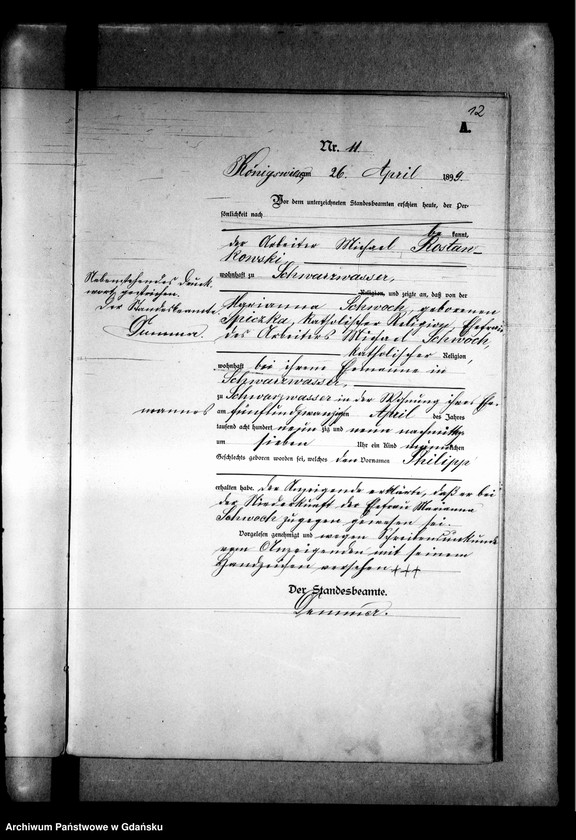 12
A.
Nr. 11
Königswiese am 26. April 1899.
Vor dem unterzeichneten Standesbeamten erschien heute, der Per-
sönlichkeit nach
be kannt,
der Arbeiter Michael Kostan-
kowski,
wohnhaft zu Schwarzwasser,
Religion, und zeigte an, daß von der
Marianna Schwoch, geborenen
Spiczka, katholischer Religion, Ehefrau
des Arbeiters Michael Schwoch,
katholischer Religion,
wohnhaft bei ihrem Ehemanne in
Schwarzwasser,
zu Schwarzwasser in der Wohnung ihres Ehe-
mannes am fünfundzwanzigsten April des Jahres
tausend acht hundert neunzig und neun nachmittags
um sieben Uhr ein Kind männlichen
Geschlechts geboren worden sei, welches den Vornamen Philipp
erhalten habe. Der Anzeigende erklärte, daß er bei
der Niederkunft der Ehefrau Marianna
Schwoch zugegen gewesen sei.
Vorgelesen, genehmigt und wegen Schreibensunkunde
vom Anzeigenden mit seinem
Handzeichen versehen +++
Der Standesbeamte.
Nebenstehendes Druck-
wort gestrichen.
Der Standesbeamte.
Archiwum Państwowe w Gdańsku